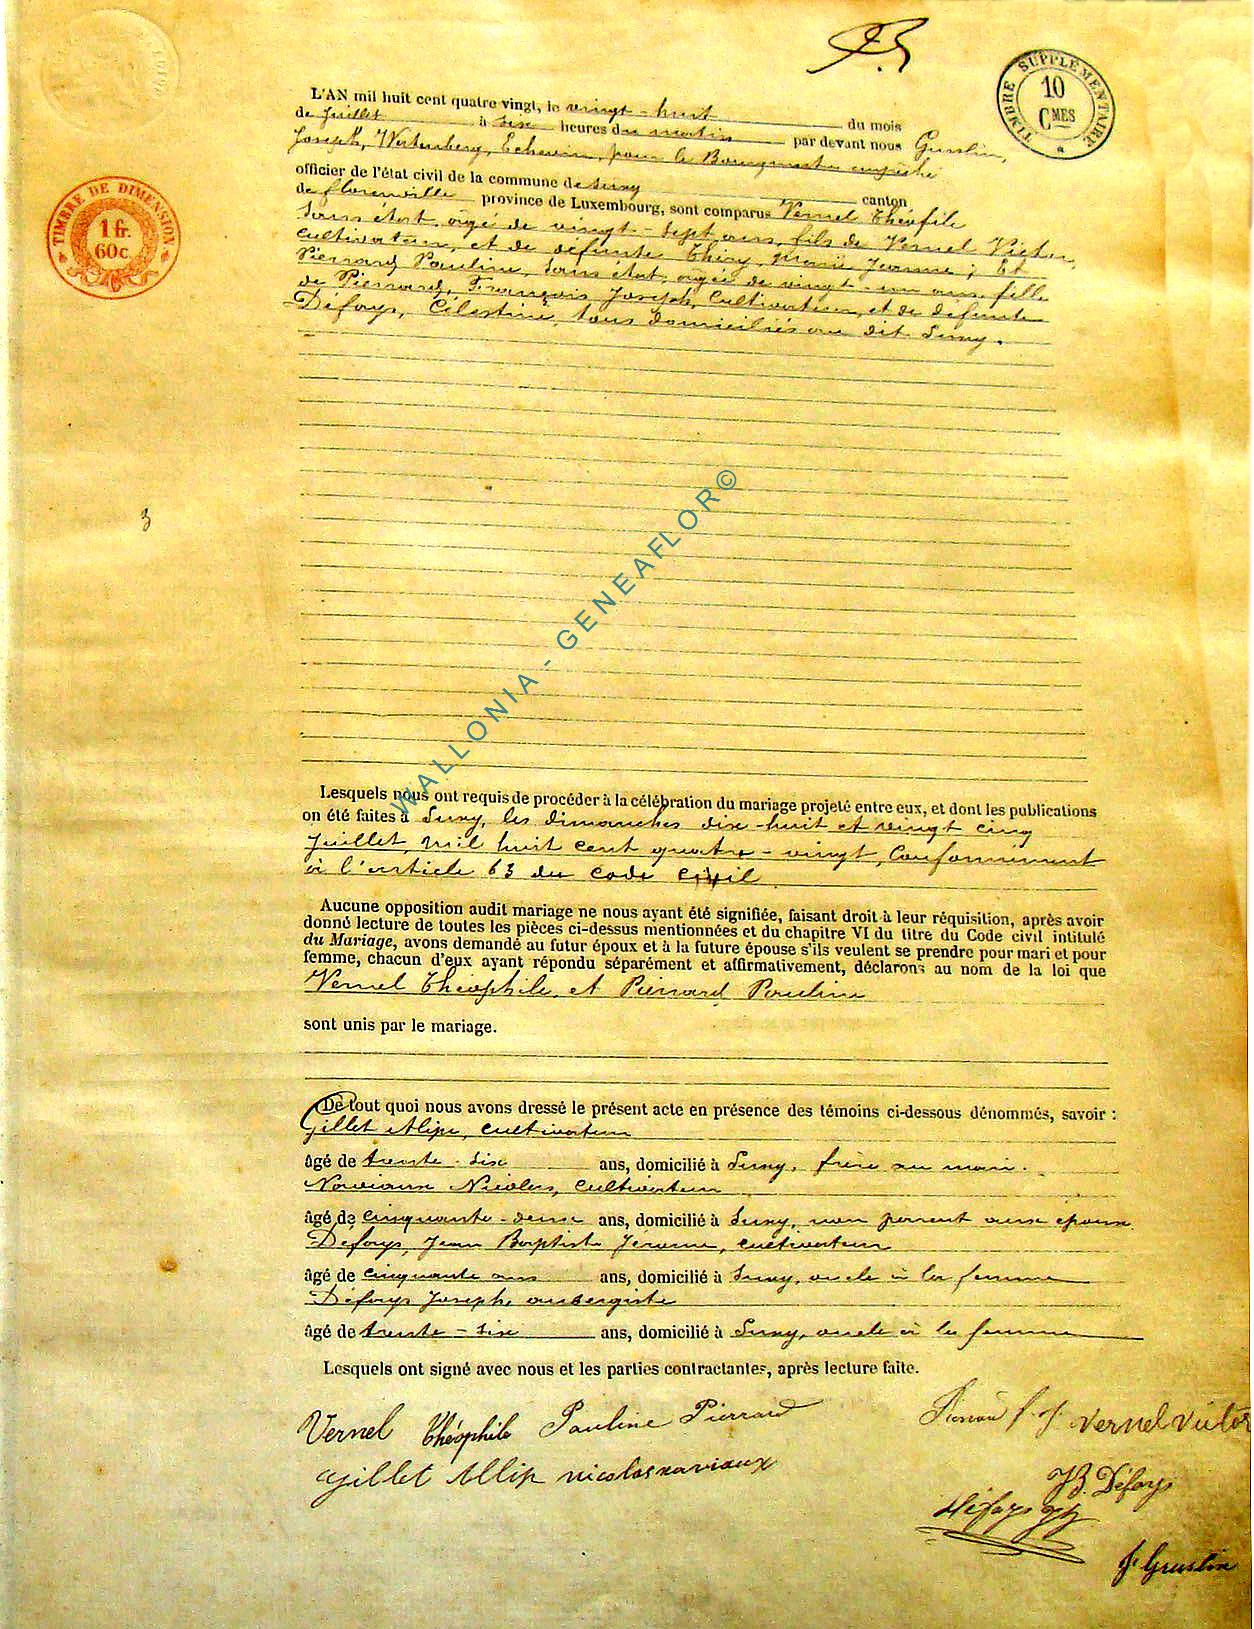 TIMBRE SUPPLÉMENTAIRE
10
CMES
L'AN mil huit cent quatre vingt, le vingt-huit du mois
de Juillet à six heures du matin par devant nous Guslin,
Joseph, Echevin, pour le Bourgmestre empêché
officier de l'état civil de la commune de Suxy canton
de florenville province de Luxembourg, sont comparus Vernel Théofile
TIMBRE DE DIMENSION
1 fr.
60c.
Sans état, agé de vingt-sept ans, fils de Vernel Victor,
cultivateur, et de défunte Thiry, Marie Jeanne; Et
Pierrard Pauline, Sans état, agée de vingt-un ans, fille
de Pierrard, François Joseph, Cultivateur, et de défunte
Défoys, Célestine, tous domiciliés au dit Suxy.
3
WALLONIA - GENEAFLOR©
Lesquels nous ont requis de procéder à la célébration du mariage projeté entre eux, et dont les publications
on été faites à Suxy, les dimanches dix-huit et vingt cinq
Juillet, mil huit cent quatre-vingt, Conformément
à l'article 63 du Code Civil.
Aucune opposition audit mariage ne nous ayant été signifiée, faisant droit à leur réquisition, après avoir
donné lecture de toutes les pièces ci-dessus mentionnées et du chapitre VI du titre du Code civil intitulé
du Mariage, avons demandé au futur époux et à la future épouse s'ils veulent se prendre pour mari et pour
femme, chacun d'eux ayant répondu séparément et affirmativement, déclarons au nom de la loi que
Vernel Théophile, et Pierrard Pauline
sont unis par le mariage.
De tout quoi nous avons dressé le présent acte en présence des témoins ci-dessous dénommés, savoir :
Gillet Alip, cultivateur
âgé de trente-six ans, domicilié à Suxy, frère au mari.
Naviaux Nicolas, cultivateur
âgé de cinquante-deux ans, domicilié à Suxy, non parent aux époux
Défoys, Jean Baptiste Jérome, cultivateur
âgé de cinquante ans ans, domicilié à Suxy, oncle à la femme
Défoys Joseph, aubergiste
âgé de trente-six ans, domicilié à Suxy, oncle à la femme
Lesquels ont signé avec nous et les parties contractantes, après lecture faite.
Vernel Théophile Pauline Pierrard f. j. Vernel Victor
Gillet Allip nicolas naviaux
JB. Défoys
Défoys